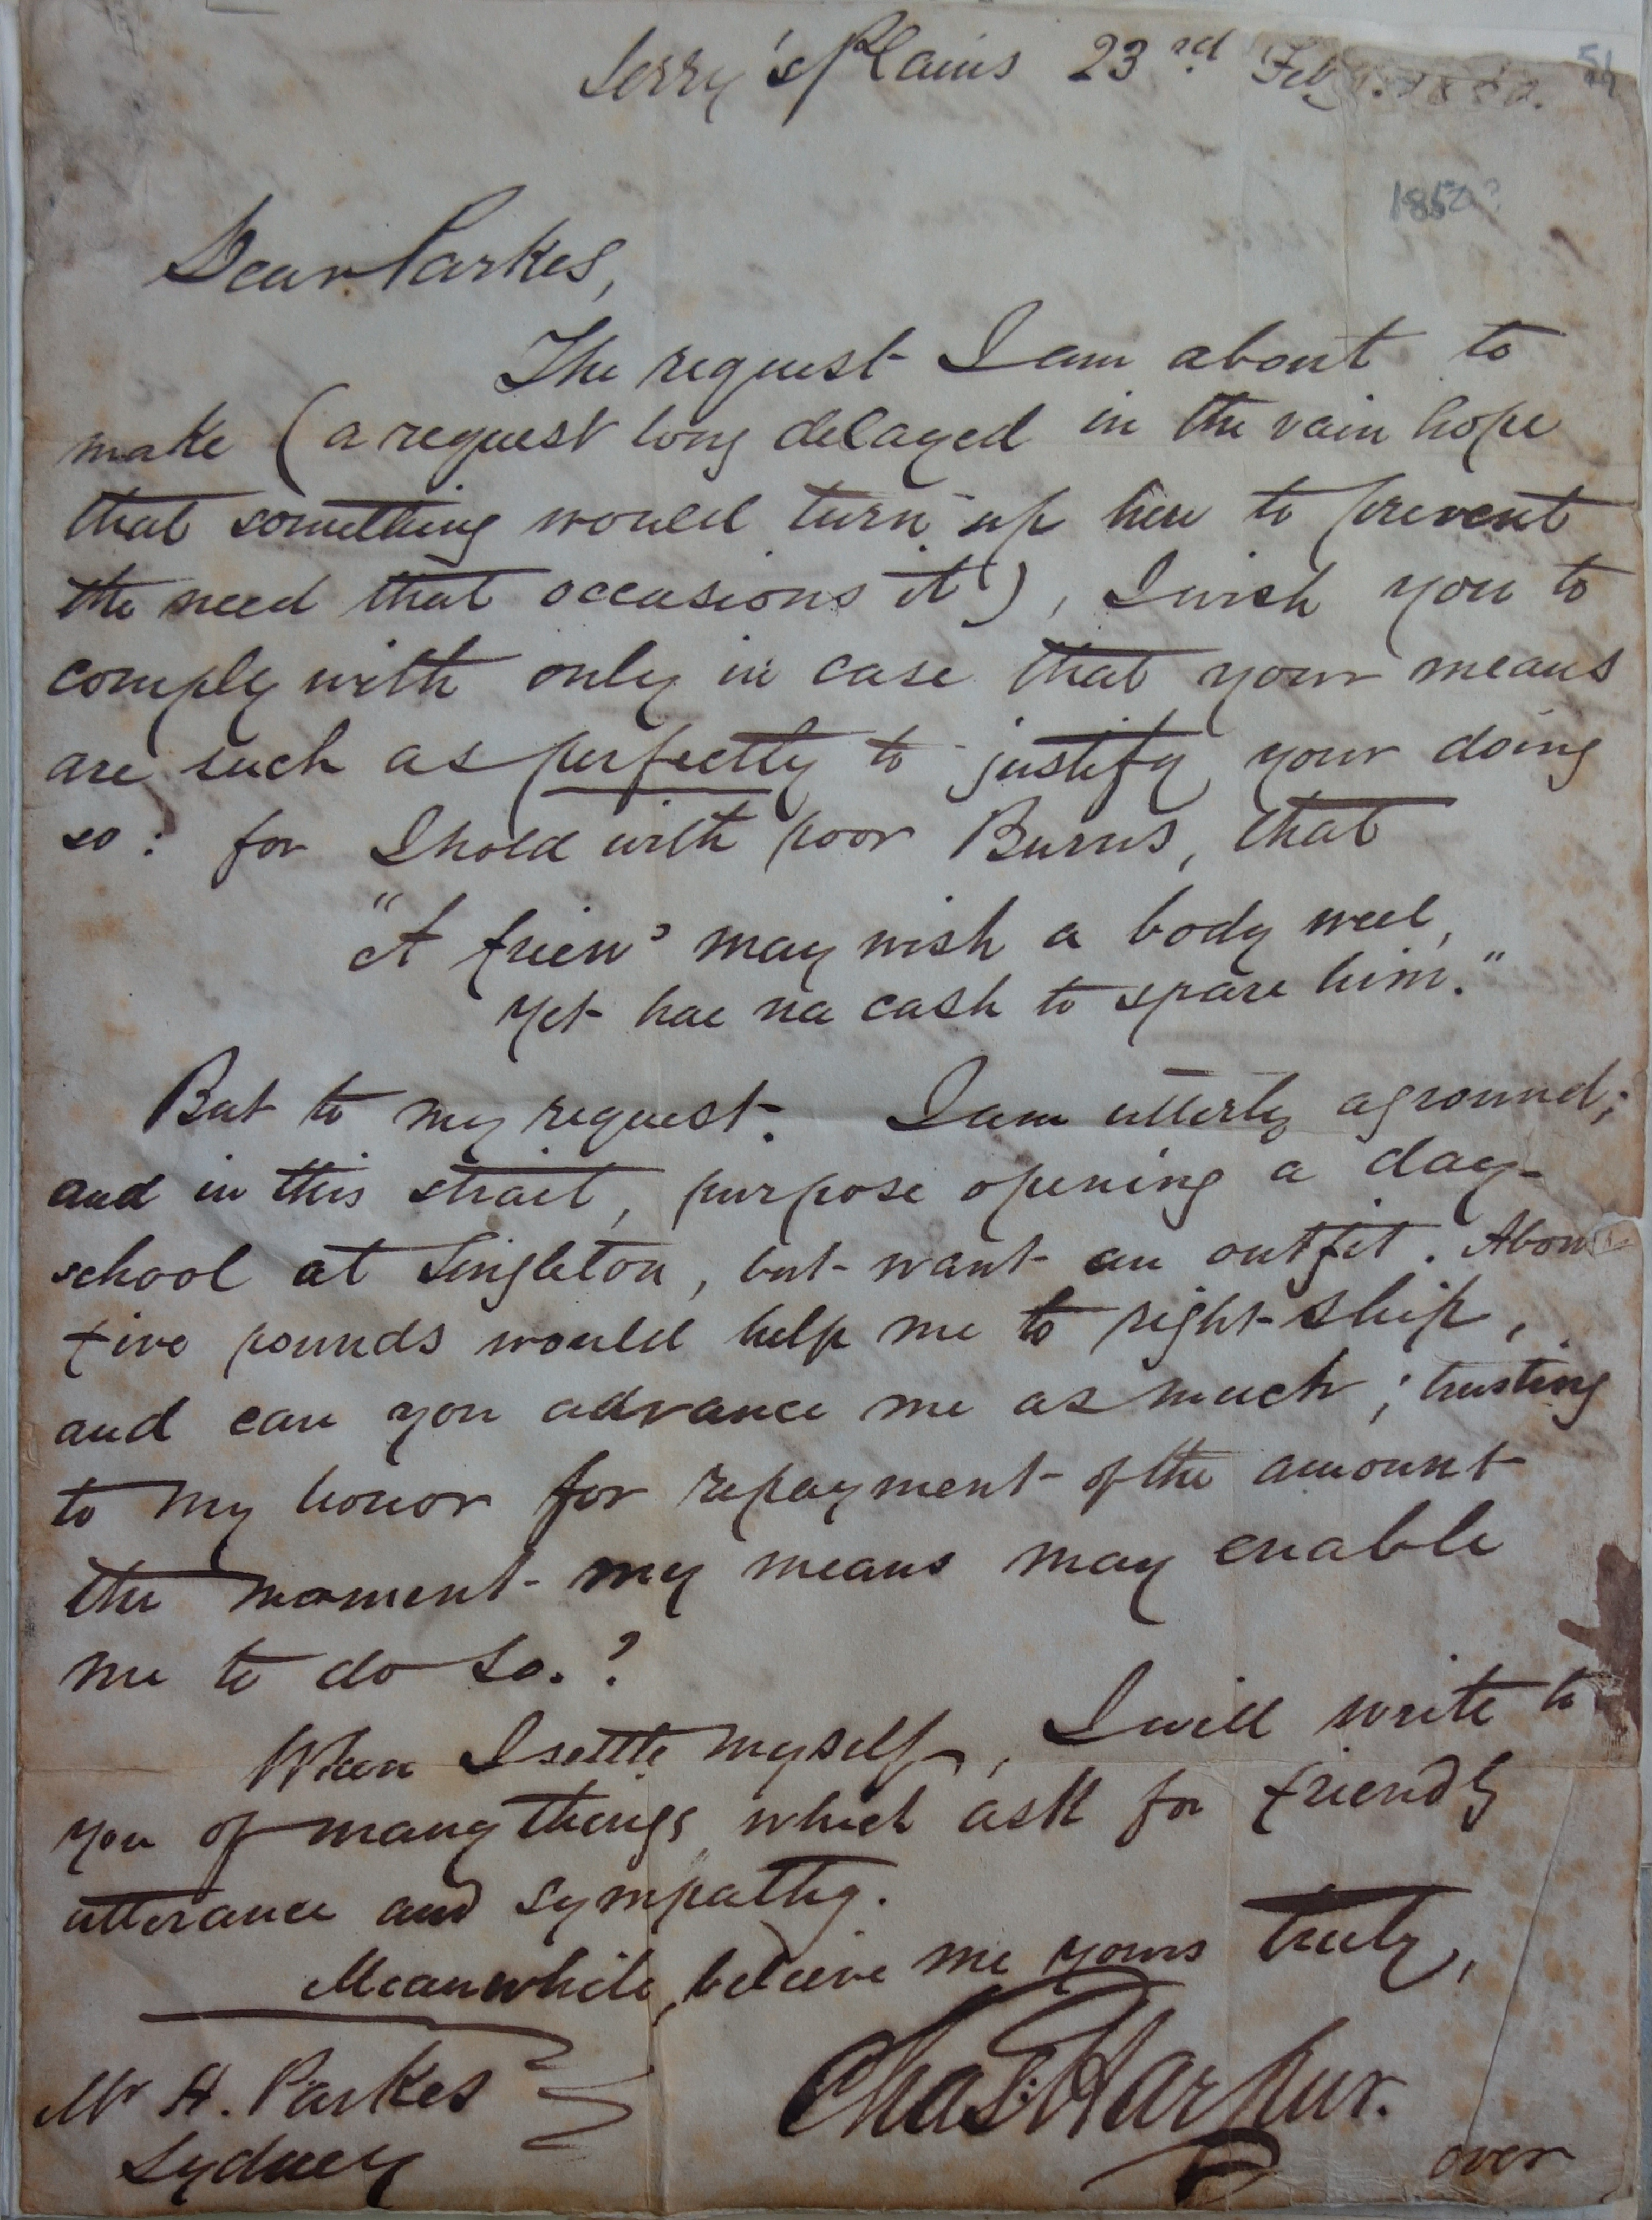 Jerry's Plains 23rd Feby.
Dear Parkes,
The request I am about to
make (a request long delayed in the vain hope
that something would turn up here to prevent
the need that occasions it), I wish you to
comply with only in case that your means
are such as perfectly to justify your doing
so: for I hold with poor Burns, that
"A frien' may wish a body weel,
yet hae na cash to spare him."
But to my request. I am utterly aground;
and in this strait, purpose opening a day-
school at Singleton, but want an outfit. About
five pounds would help me to right ship,
and can you advance me as much; trusting
to my honor for repayment of the amount
the moment my means may enable
me to do so.?
When I settle myself, I will write to
you of many things which ask for friendly
utterance and sympathy.
Meanwhile, believe me yours truly,
Chas: Harpur.
Mr H. Parkes
Sydney
over